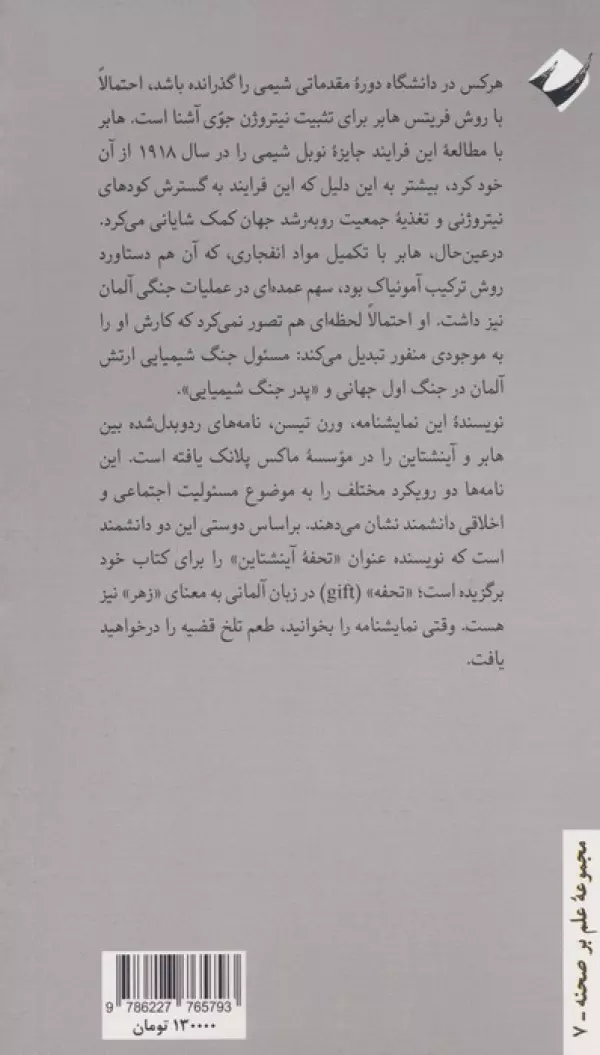 هرکس در دانشگاه دورهٔ مقدماتی شیمی را گذرانده باشد، احتمالاً
با روش فریتس هابر برای تثبیت نیتروژن جوّی آشنا است. هابر
با مطالعهٔ این فرایند جایزهٔ نوبل شیمی را در سال ۱۹۱۸ از آن
خود کرد، بیشتر به این دلیل که این فرایند به گسترش کودهای
نیتروژنی و تغذیهٔ جمعیت روبه‌رشد جهان کمک شایانی می‌کرد.
درعین‌حال، هابر با تکمیل مواد انفجاری، که آن هم دستاورد
روش ترکیب آمونیاک بود، سهم عمده‌ای در عملیات جنگی آلمان
نیز داشت. او احتمالاً لحظه‌ای هم تصور نمی‌کرد که کارش او را
به موجودی منفور تبدیل می‌کند: مسئول جنگ شیمیایی ارتش
آلمان در جنگ اول جهانی و «پدر جنگ شیمیایی».
نویسندهٔ این نمایشنامه، ورن تیسن، نامه‌های ردوبدل‌شده بین
هابر و آینشتاین را در مؤسسهٔ ماکس پلانک یافته است. این
نامه‌ها دو رویکرد مختلف را به موضوع مسئولیت اجتماعی و
اخلاقی دانشمند نشان می‌دهند. براساس دوستی این دو دانشمند
است که نویسنده عنوان «تحفهٔ آینشتاین» را برای کتاب خود
برگزیده است؛ «تحفه» (gift) در زبان آلمانی به معنای «زهر» نیز
هست. وقتی نمایشنامه را بخوانید، طعم تلخ قضیه را درخواهید
یافت.
مجموعهٔ علم بر صحنه - ۷
9 786227 765793
۱۳۰۰۰۰ تومان